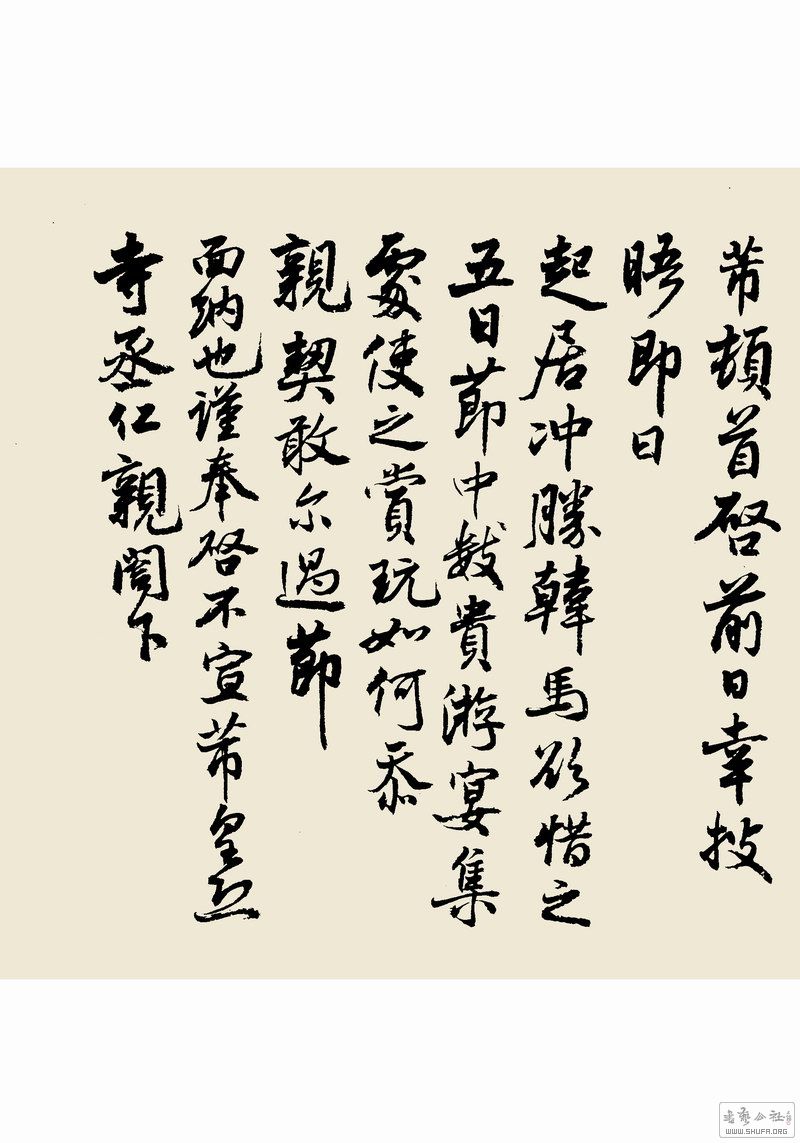 芾頓首啓前日幸披
晤即日
起居冲勝韓馬欲惜之
五日節中數貴游宴集
處使之賞玩如何忝
親契敢尒過節
面納也謹奉啓不宣芾皇恐
寺丞仁親閤下
書藝公社
WWW.SHUFA.ORG